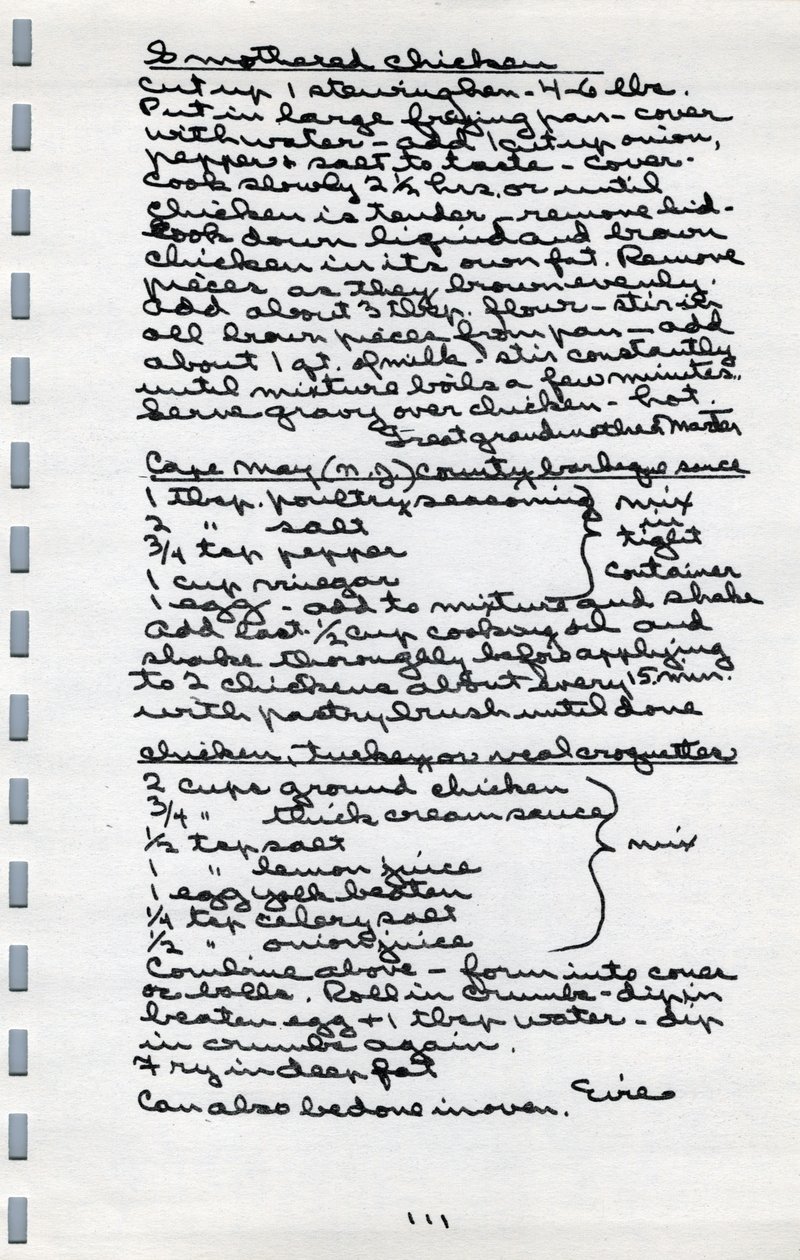 Smothered chicken
Cut up 1 stewing hen - 4-6 lbs.
Put in large frying pan - cover
with water - add 1 cut up onion,
pepper & salt to taste - cover.
Cook slowly 2 1/2 hrs. or until
chicken is tender - remove lid -
cook down liquid and brown
chicken in its own fat. Remove
pieces as they brown evenly.
Add about 3 tbsp. flour - stir in
all brown pieces from pan - add
about 1 qt. of milk - stir constantly
until mixture boils a few minutes.
Serve gravy over chicken - hot.
Great grandmother
Cape May (N.J.) County barbeque sauce
1 tbsp. poultry seasoning } mix
2 " salt in
3/4 tsp pepper tight
1 cup vinegar container
1 egg - add to mixture and shake
Add last 1/2 cup cooking oil and
shake thoroughly before applying
to 2 chickens about every 15 min.
with pastry brush until done
Chicken, turkey or veal croquettes
2 cups ground chicken
3/4 " thick cream sauce
1/2 tsp salt } mix
1 " lemon juice
1 egg yolk beaten
1/4 tsp celery salt
1/2 " onion juice
Combine above - form into cones
or balls. Roll in crumbs - dip in
beaten egg + 1 tbsp water - dip
in crumbs again.
Fry in deep fat
Can also be done in oven.
111